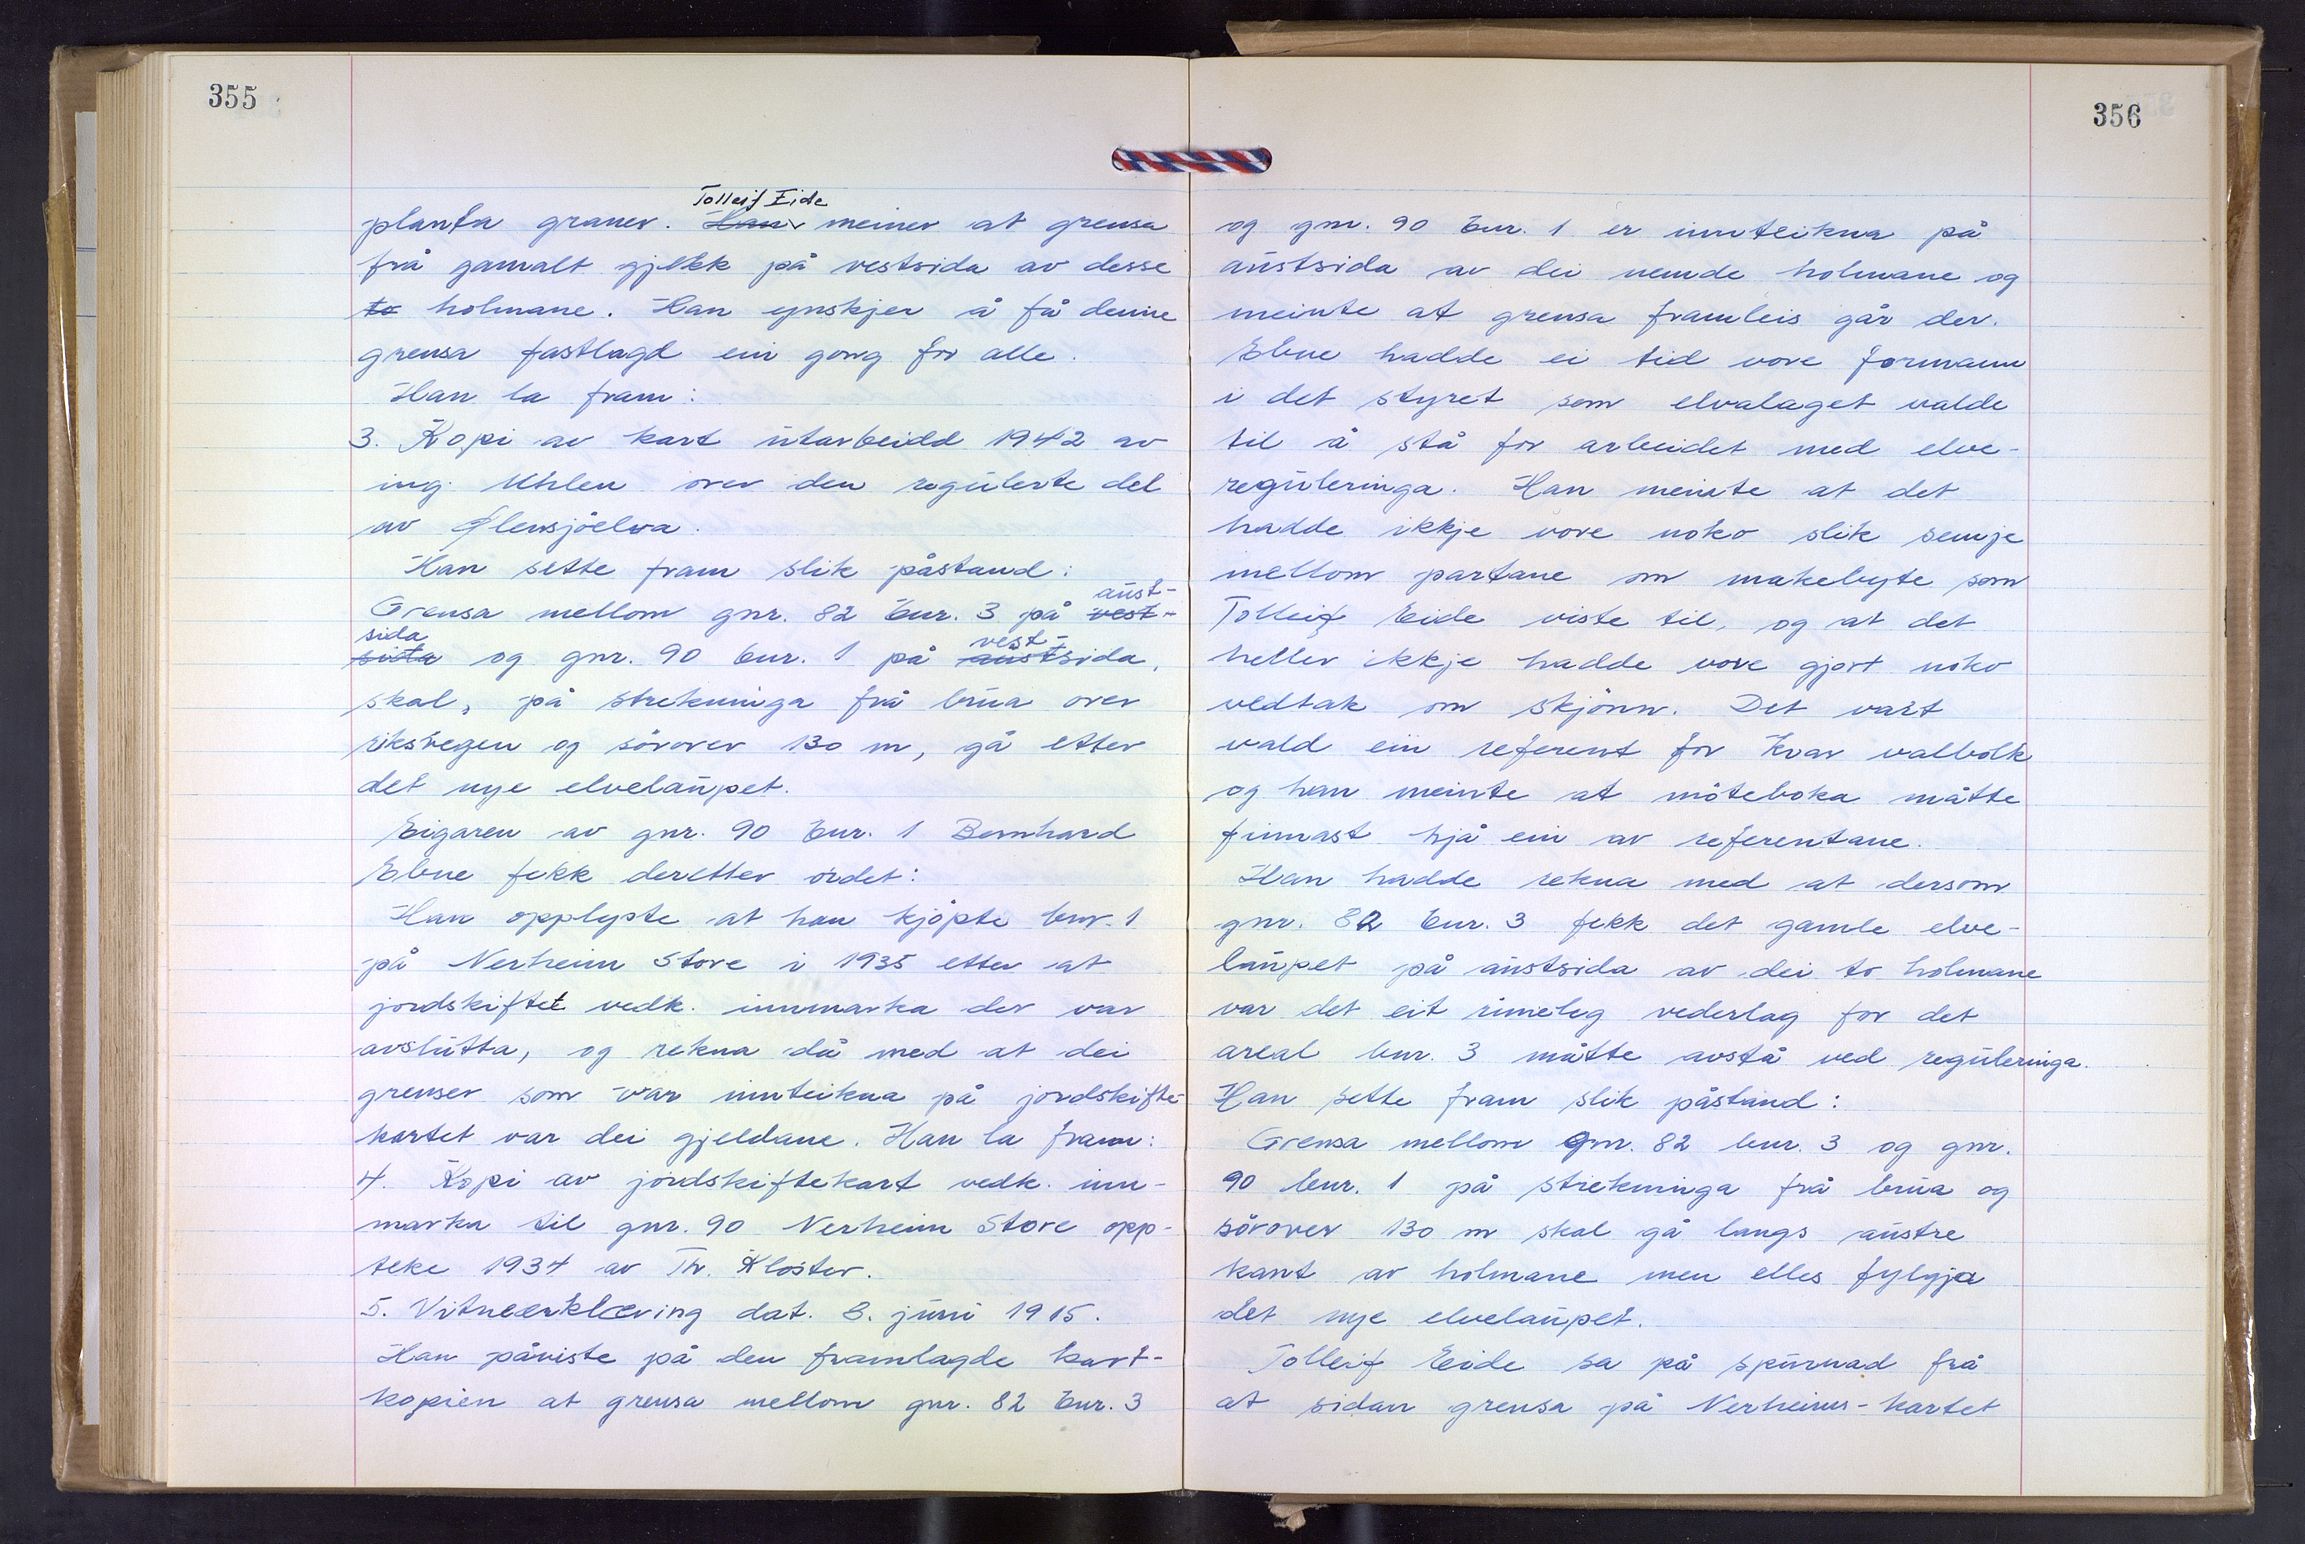 355
Tolleif Eide
planta graner. Han meiner at grensa
frå gamalt gjekk på vestsida av desse
to holmane. Han ynskjer å få denne
grensa fastlagd ein gong for alle.
Han la fram:
3. Kopi av kart utarbeidd 1942 av
ing. Uhlen over den regulerte del
av Ølensjöelva.
Han sette fram slik påstand:
aust-
Grensa mellom gnr. 82 bnr. 3 på vest-
sida vest-
sida og gnr. 90 bnr. 1 på austsida,
skal, på strekninga frå brua over
riksvegen og sörover 130 m, gå etter
det nye elvelaupet.
Eigaren av gnr. 90 bnr. 1 Bernhard
Ebne fekk deretter ordet:
Han opplyste at han kjöpte bnr. 1
på Nerheim Store i 1935 etter at
jordskiftet vedk. innmarka der var
avslutta, og rekna då med at dei
grenser som var innteikna på jordskifte-
kartet var dei gjeldane. Han la fram:
4. Kopi av jordskiftekart vedk. inn-
marka til gnr. 90 Nerheim Store opp-
teke 1934 av Th. Kloster.
5. Vitneerklæring dat. 8. juni 1915.
Han påviste på den framlagde kart-
kopien at grensa mellom gnr. 82 bnr. 3
356
og gnr. 90 bnr. 1 er innteikna på
austsida av dei nemde holmane og
meinte at grensa framleis går der.
Ebne hadde ei tid vore formann
i det styret som elvalaget valde
til å stå for arbeidet med elve-
reguleringa. Han meinte at det
hadde ikkje vore noko slik semje
mellom partane om makebyte som
Tolleif Eide viste til, og at det
heller ikkje hadde vore gjort noko
vedtak om skjönn. Det vart
vald ein referent for kvar valbolk
og han meinte at möteboka måtte
finnast hjå ein av referentane.
Han hadde rekna med at dersom
gnr. 82 bnr. 3 fekk det gamle elve-
laupet på austsida av dei to holmane
var det eit rimeleg vederlag for det
areal bnr. 3 måtte avstå ved reguleringa.
Han sette fram slik påstand:
Grensa mellom gnr. 82 bnr. 3 og gnr.
90 bnr. 1 på strekninga frå brua og
sörover 130 m skal gå langs austre
kant av holmane men elles fylgja
det nye elvelaupet.
Tolleif Eide sa på spurnad frå
at sidan grensa på Nerheims-kartet